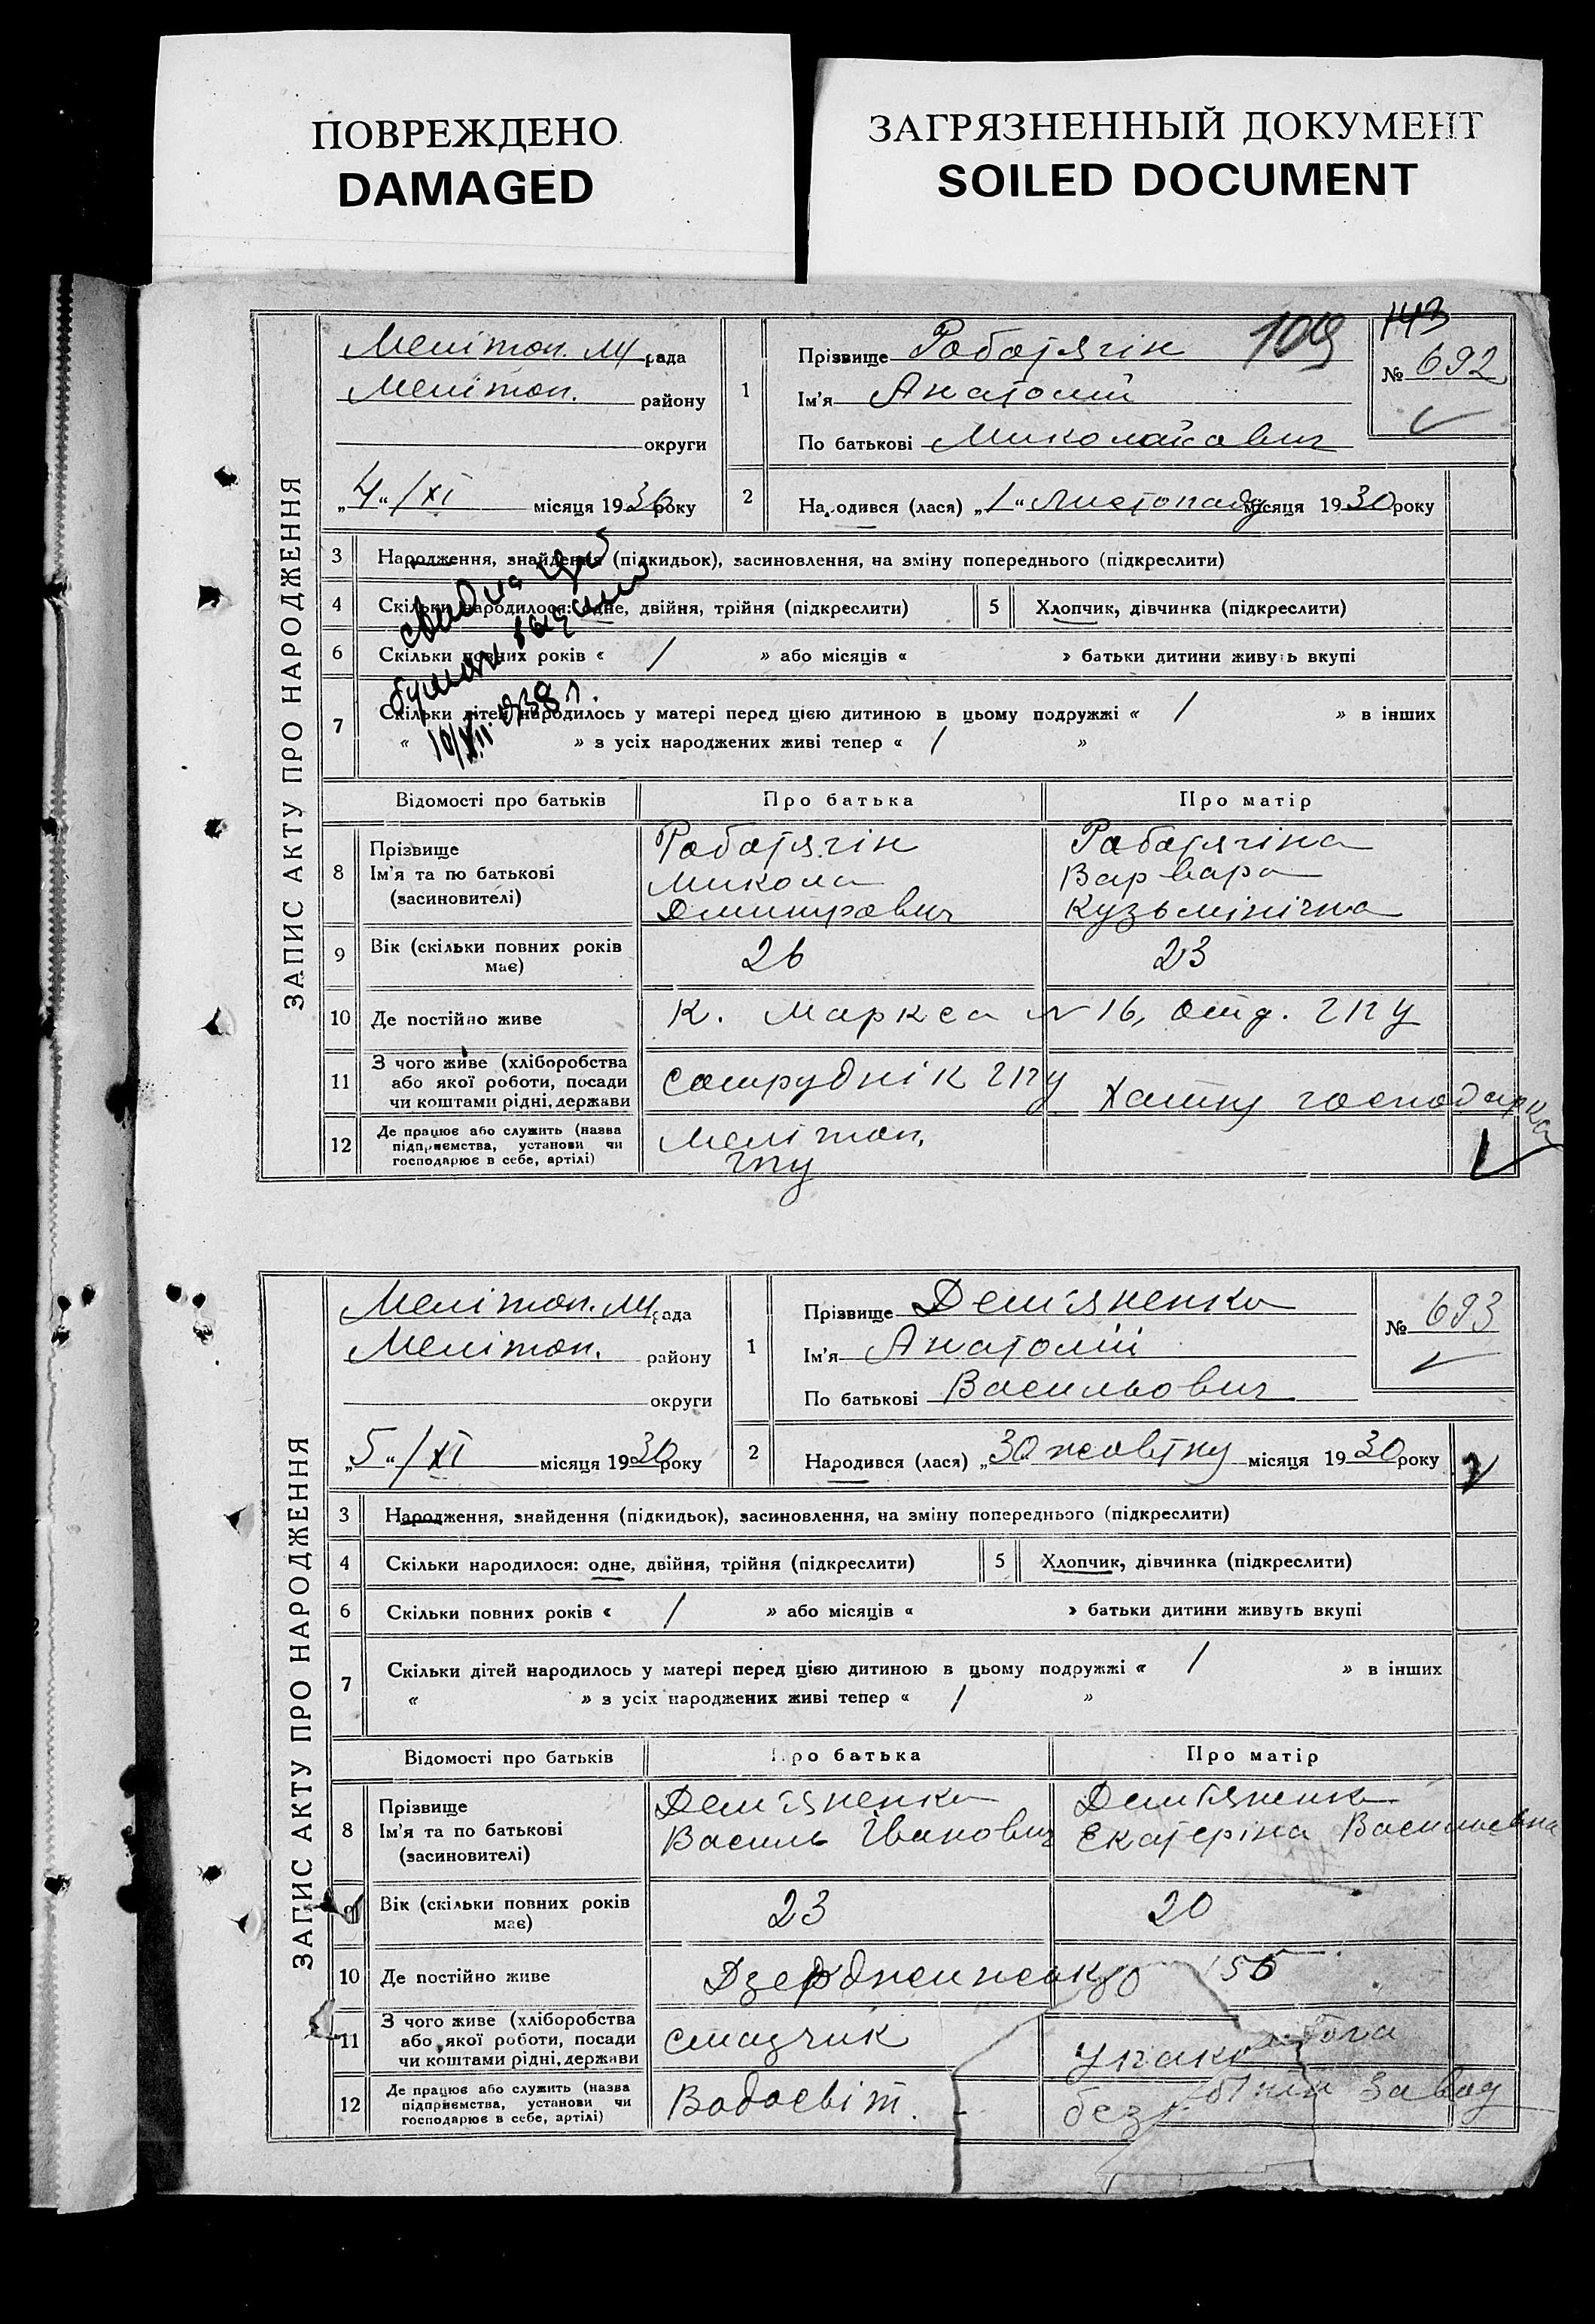 ПОВРЕЖДЕНО
DAMAGED
ЗАГРЯЗНЕННЫЙ ДОКУМЕНТ
SOILED DOCUMENT
143
109
ЗАПИС АКТУ ПРО НАРОДЖЕННЯ
Меліт оп. М рада
Мелітоп. району
округи
„4“/XI місяця 1930 року
1 Прізвище Работягін
Ім'я Анатолій
По батькові Миколайович
№ 692
2 Народився (лася) „1“ Листопаду місяця 1930 року
3 Народження, знайдення (підкидьок), засиновлення, на зміну попереднього (підкреслити)
4 Скільки народилося: одне, двійня, трійня (підкреслити) 5 Хлопчик, дівчинка (підкреслити)
6 Скільки повних років « / » або місяців « » батьки дитини живуть вкупі
7 Скільки дітей народилось у матері перед цією дитиною в цьому подружжі « / » в інших
« » з усіх народжених живі тепер « / »
10/VII 1938 г.
Відомості про батьків Про батька Про матір
8 Прізвище Работягін Работягіна
Ім'я та по батькові Микола Варвара
(засиновителі) Дмитрович Кузьмінічна
9 Вік (скільки повних років має) 26 23
10 Де постійно живе К. Маркса № 16, отд. ГПУ
11 З чого живе (хліборобства
або якої роботи, посади
чи коштами рідні, держави Сотруднік ГПУ Хатня господарка
12 Де працює або служить (назва
підприємства, установи чи
господарює в себе, артілі) Меліт оп. ГПУ
ЗАПИС АКТУ ПРО НАРОДЖЕННЯ
Меліт оп. М рада
Мелітоп. району
округи
„5“/XI місяця 1930 року
1 Прізвище Дем'яненко
Ім'я Анатолій
По батькові Васильович
№ 693
2 Народився (лася) „30 жовтну місяця 1930 року
3 Народження, знайдення (підкидьок), засиновлення, на зміну попереднього (підкреслити)
4 Скільки народилося: одне, двійня, трійня (підкреслити) 5 Хлопчик, дівчинка (підкреслити)
6 Скільки повних років « / » або місяців « » батьки дитини живуть вкупі
7 Скільки дітей народилось у матері перед цією дитиною в цьому подружжі « / » в інших
« » з усіх народжених живі тепер « / »
Відомості про батьків Про батька Про матір
8 Прізвище Дем'яненко Дем'яненко
Ім'я та по батькові Василь Іванович Екатеріна Васильевна
(засиновителі)
9 Вік (скільки повних років має) 23 20
10 Де постійно живе Дзерджинсько
11 З чого живе (хліборобства
або якої роботи, посади
чи коштами рідні, держави смазчик
12 Де працює або служить (назва
підприємства, установи чи
господарює в себе, артілі) Водосвіт. завод